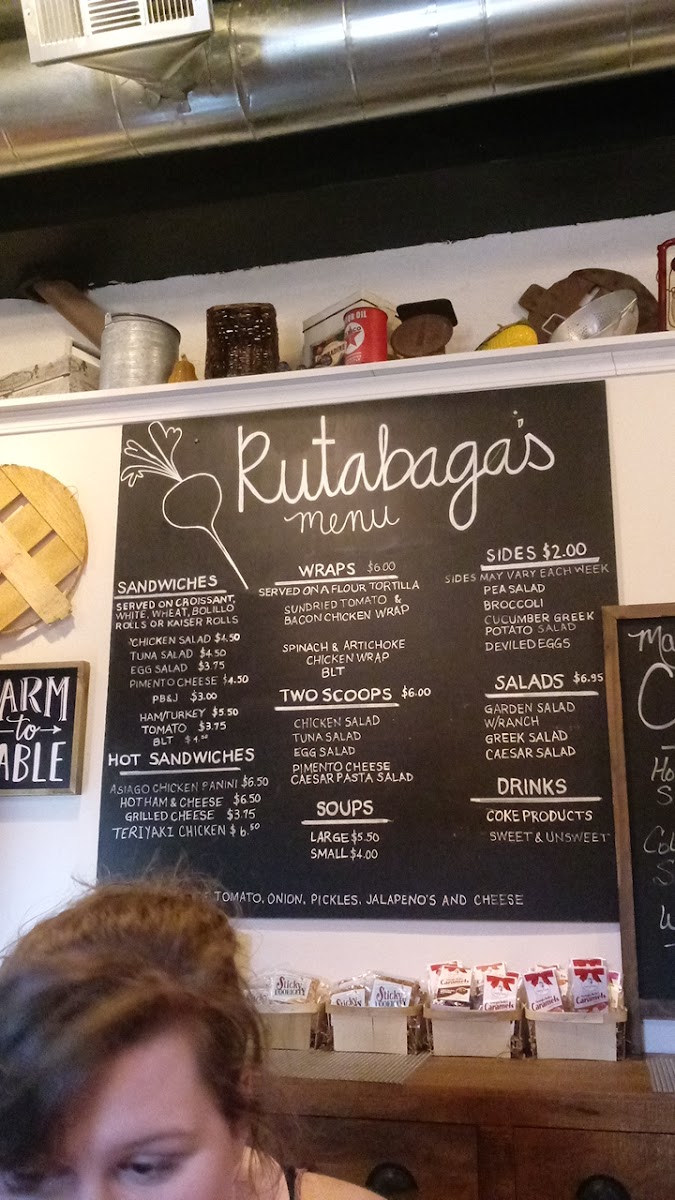 OIL
Rutabaga's
menu
SANDWICHES
SERVED ON CROISSANT,
WHITE, WHEAT, BOLILLO
ROLLS OR KAISER ROLLS
CHICKEN SALAD $4.50
TUNA SALAD $4.50
EGG SALAD $3.75
PIMENTO CHEESE $4.50
PB&J $3.00
HAM/TURKEY $5.50
TOMATO $3.75
BLT
HOT SANDWICHES
ASIAGO CHICKEN PANINI $6.50
HOT HAM & CHEESE $6.50
GRILLED CHEESE $3.75
TERIYAKI CHICKEN $6.50
WRAPS $6.00
SERVED ON A FLOUR TORTILLA
SUNDRIED TOMATO &
BACON CHICKEN WRAP
SPINACH & ARTICHOKE
CHICKEN WRAP
BLT
TWO SCOOPS $6.00
CHICKEN SALAD
TUNA SALAD
EGG SALAD
PIMENTO CHEESE
CAESAR PASTA SALAD
SOUPS
LARGE $5.50
SMALL $4.00
SIDES $2.00
SIDES MAY VARY EACH WEEK
PEA SALAD
BROCCOLI
CUCUMBER GREEK
POTATO SALAD
DEVILED EGGS
SALADS $6.95
GARDEN SALAD
W/RANCH
GREEK SALAD
CAESAR SALAD
DRINKS
COKE PRODUCTS
SWEET & UNSWEET
TOMATO, ONION, PICKLES, JALAPENO'S AND CHEESE
ARM
to
ABLE
Ma
C
Ho
S
Col
S
W
Sticky
Sticky
Sticky
Caramels
Caramels
Caramels
Caramels